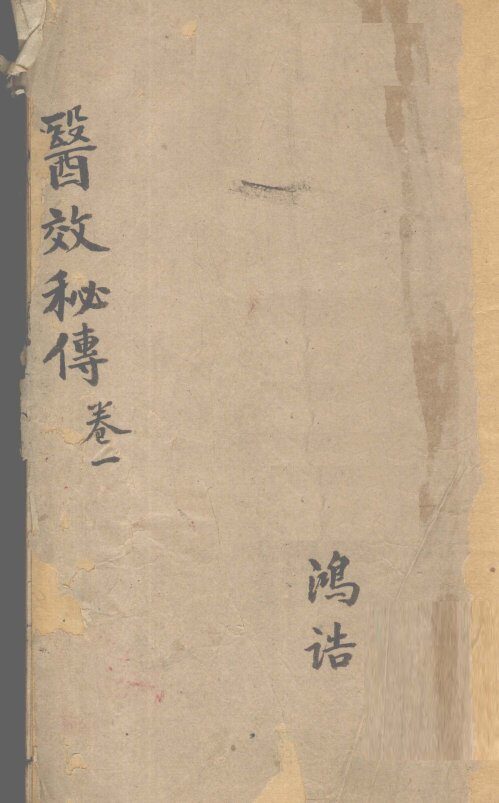 醫效秘傳 卷一
一
鴻誥